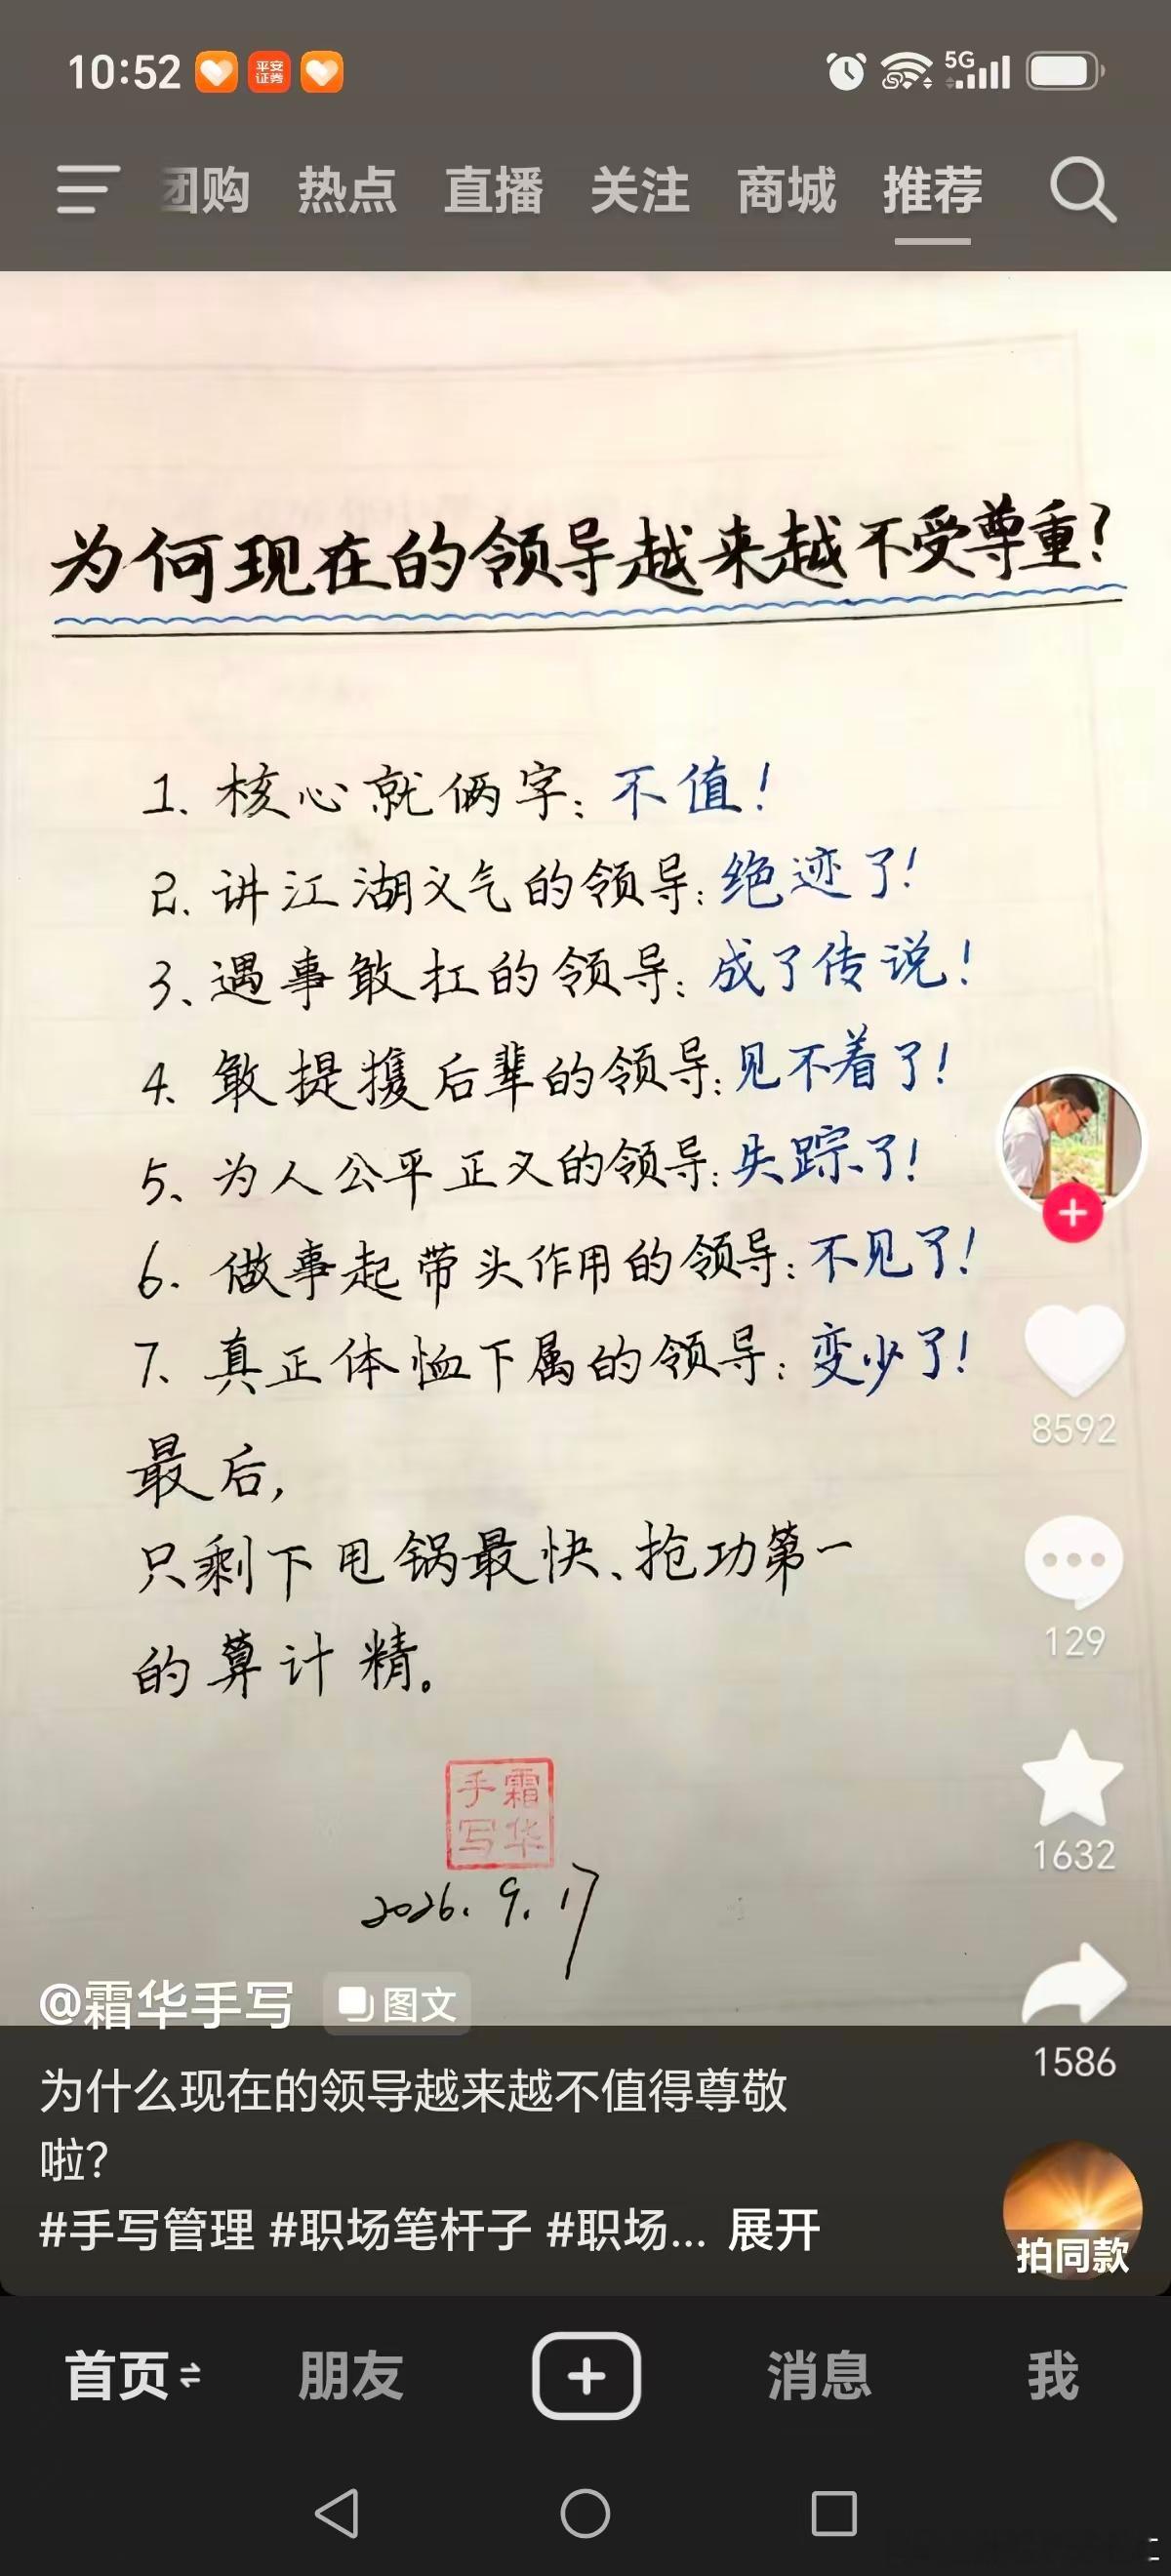 10:52
平安证券
5G
团购 热点 直播 关注 商城 推荐
为何现在的领导越来越不受尊重?
1、核心就俩字:不值!
2、讲江湖义气的领导:绝迹了!
3、遇事敢扛的领导:成了传说!
4、敢提携后辈的领导:见不着了!
5、为人公平正义的领导:失踪了!
6、做事起带头作用的领导:不见了!
7、真正体恤下属的领导:变少了!
最后,
只剩下甩锅最快、抢功第一
的算计精。
霜华手写
2026.9.17
8592
129
1632
1586
@霜华手写 图文
为什么现在的领导越来越不值得尊敬
啦?
#手写管理 #职场笔杆子 #职场... 展开
拍同款
首页 朋友 消息 我